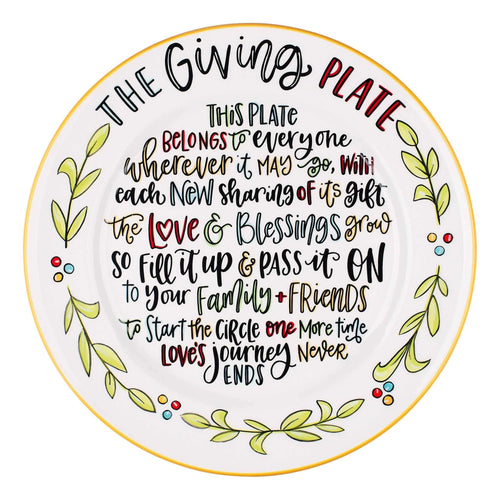 THE Giving PLATE
THIS PLATE
BELONGS to everyone
wherever it MAY go, WITH
each NEW sharing OF its gift
the LOVE & Blessings grow
SO Fill it up & PASS it ON
to your FAMILY + FRIENDS
to START the CIRCLE one MORE time
LOVE'S journey NEVER
ENDS